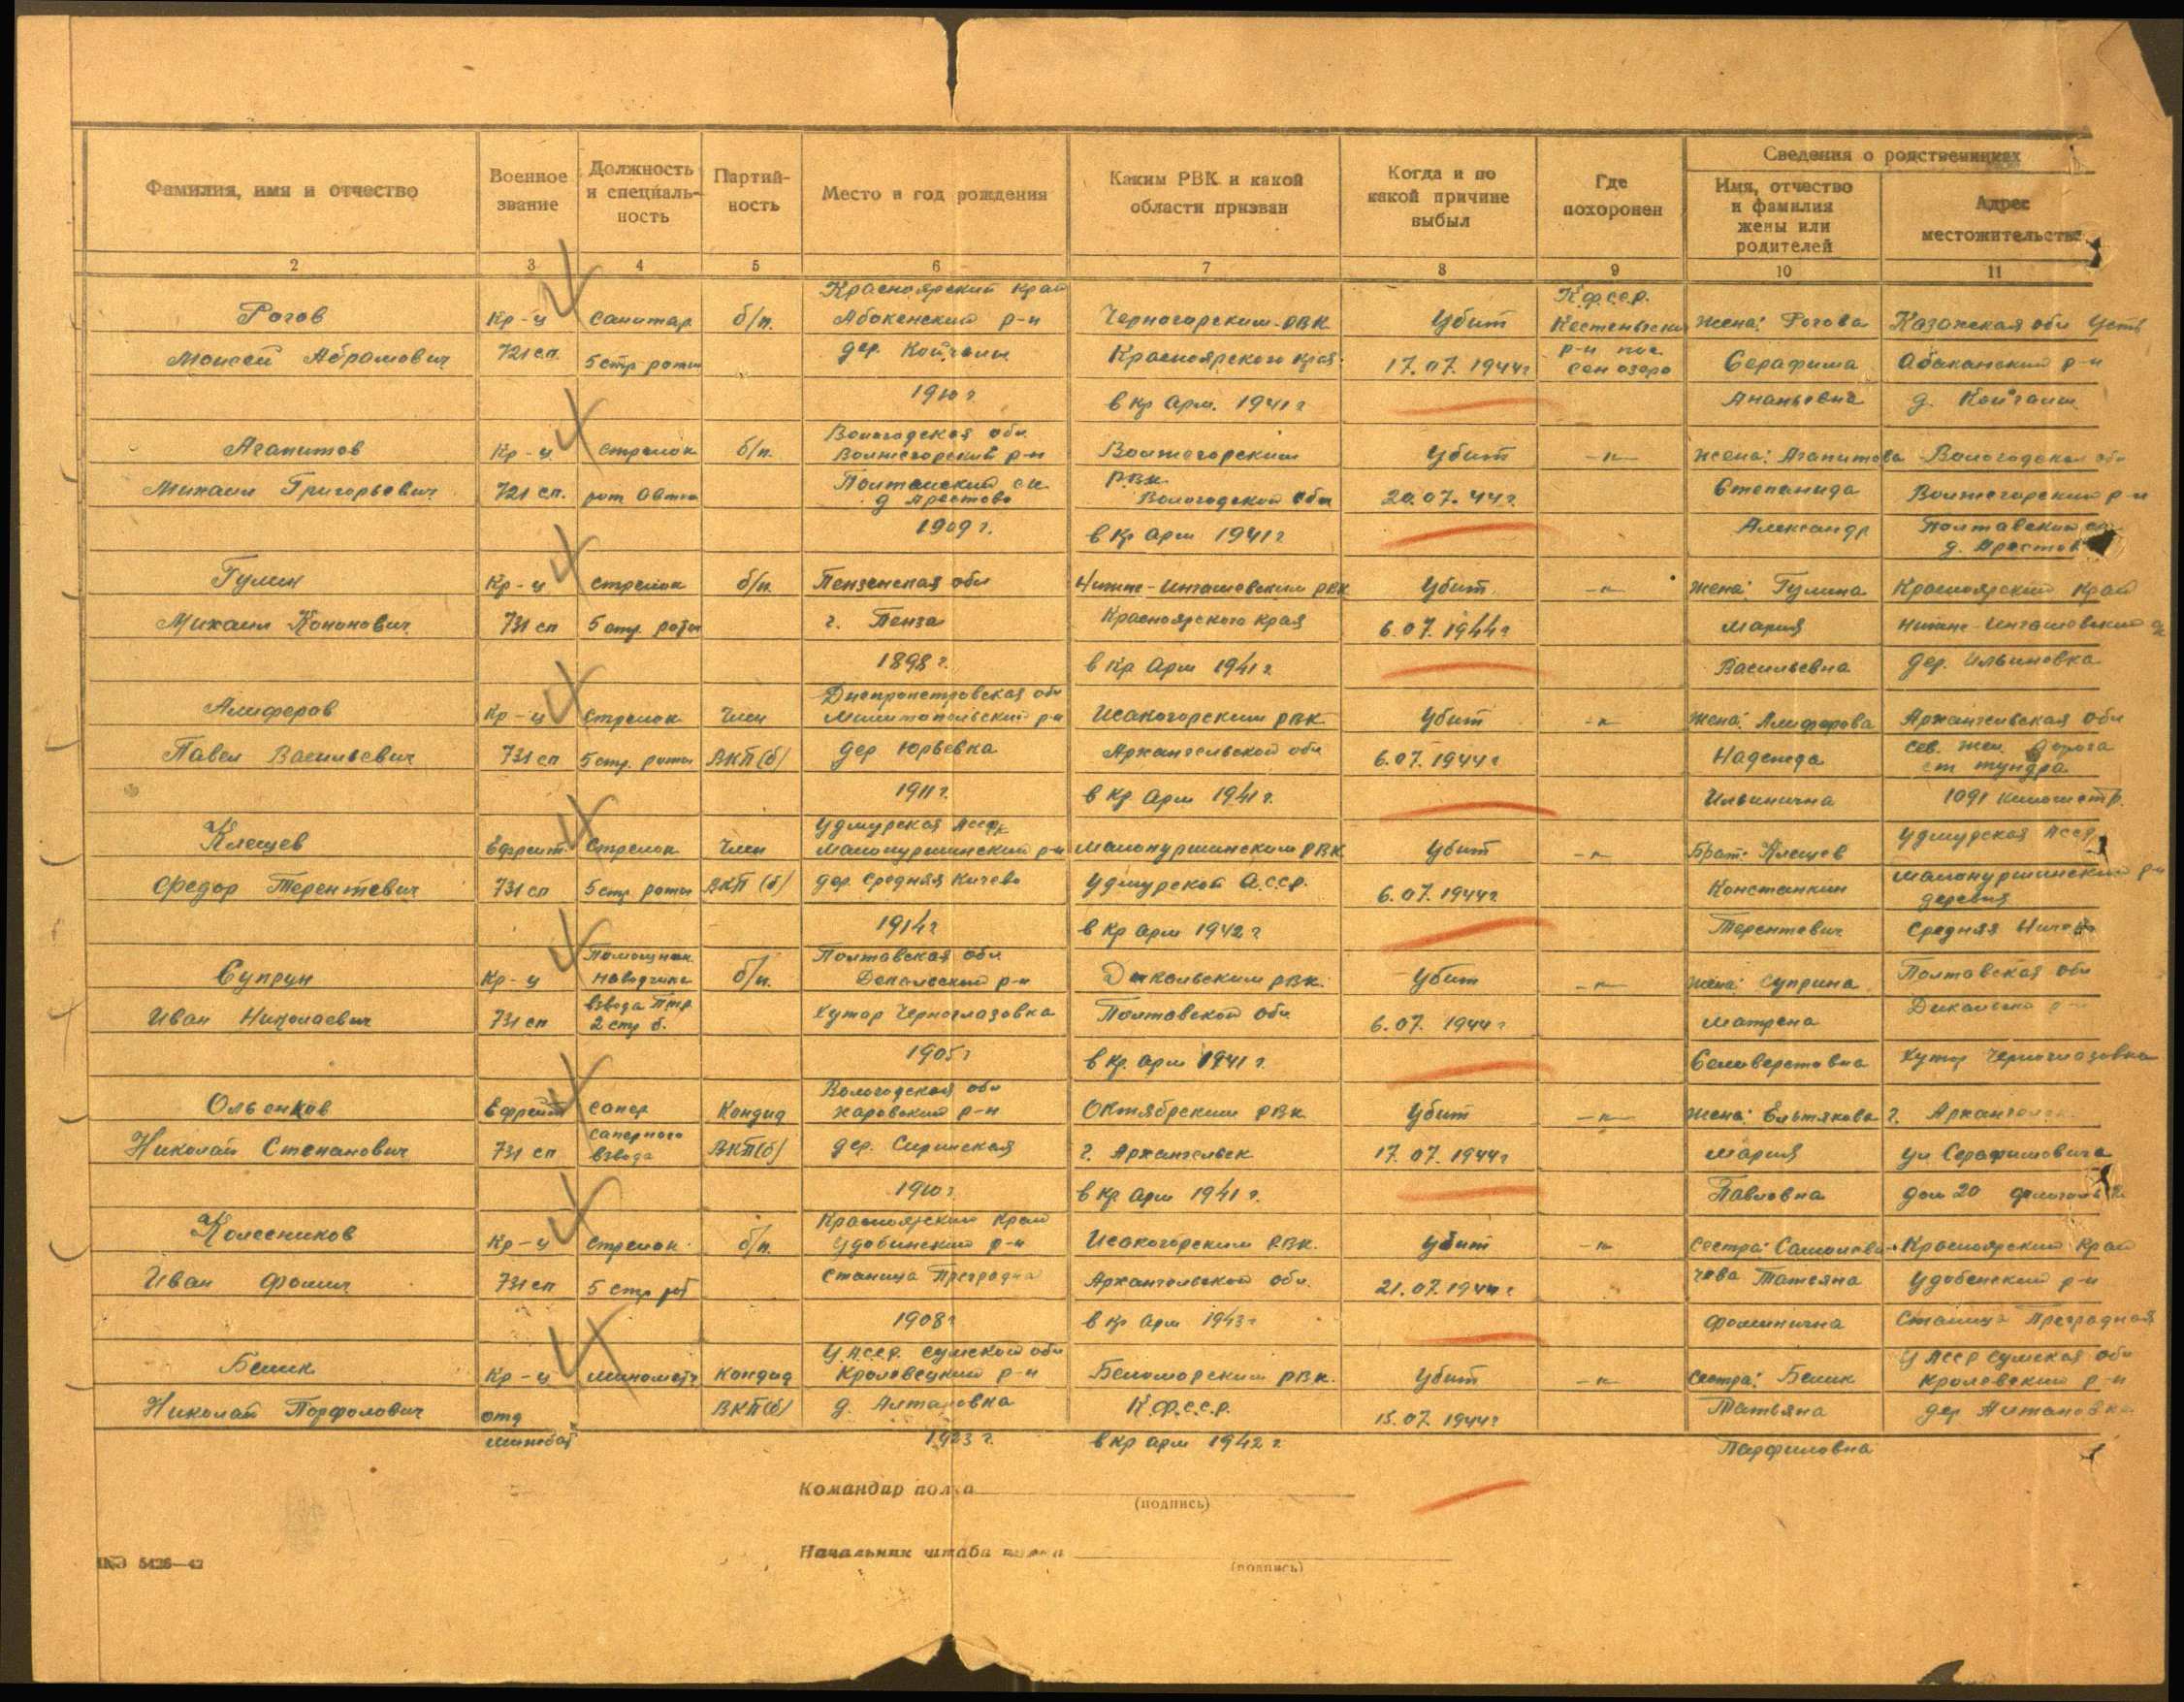 Фамилия, имя и отчество
Военное звание
Должность и специаль-
ность
Партий-
ность
Место и год рождения
Каким РВК и какой
области призван
Когда и по
какой причине
выбыл
Где
похоронен
Сведения о родственниках
Имя, отчество
и фамилия
жены или
родителей
Адрес
местожительства
2 3 4 5 6 7 8 9 10 11
Рогов
Моисей Абрамович
Кр-ц
721 сп.
санитар
5 стр роты
б/п.
Красноярский край
Абокенский р-н
дер. Койчали
1910 г
Черногорским РВК
Красноярского края
в кр Арм. 1941 г
Убит
17.07.1944 г
К.ф.с.с.р.
Кестеньгский
р-н пос.
сен озеро
жена: Рогова
Серафима
Ананьевна
Казанская обл Усть
Абаканский р-н
д. Койчали
Агапитов
Михаил Григорьевич
Кр-ц
721 сп.
стрелок
рот Автом
б/п.
Вологодская обл.
Вожегорский р-н
д Арестово
1909 г.
Вожегорским
РВК
Вологодской обл
в кр арм 1941 г
Убит
20.07.44 г.
-"-
жена: Агапитова
Степанида
Александр
Вологодская обл
Вожегорский р-н
д. Арестов
Гулин
Михаил Кононович
Кр-ц
731 сп
стрелок
5 стр. роты
б/п.
Пензенская обл
г. Пенза
1898 г.
Нижне-Ингашевским РВК
Красноярского края
в кр Арм 1941 г.
Убит
6.07.1944 г
-"-
жена: Гулина
Мария
Васильевна
Красноярский край
Нижне-Ингашевский
дер. Ильиновка
Алиферов
Павел Васильевич
Кр-ц
731 сп
стрелок
5 стр. роты
Член
ВКП(б)
Днепропетровская обл
Мелитопольский р-н
дер Юрьевка
1911 г.
Исакогорским РВК
Архангельской обл
в кр Арм 1941 г.
Убит
6.07.1944 г
-"-
жена: Алиферова
Надежда
Ильинична
Архангельская обл
сев. жел. дорога
ст тундра
1091 километр.
Клещев
Федор Терентевич
Ефрейт.
731 сп
Стрелок
5 стр роты
Член
ВКП(б)
Удмурская Асср
Малопургинский р-н
дер. Средняя Кичево
1914 г
Малопургинским РВК
Удмурской А.с.с.р.
в кр арм 1942 г
Убит
6.07.1944 г
-"-
Брат: Клещев
Константин
Терентевич
Удмурдская Асср
Малопургинский р-н
деревня
Средняя
Супрун
Иван Николаевич
Кр-ц
731 сп
Помощник
наводчика
взвода птр.
2 стр б.
б/п.
Полтавская обл
р-н
хутор Черноглазовка
1905 г
Дикальским РВК.
Полтавской обл
в кр. арм 1941 г.
Убит
6.07.1944 г
-"-
жена: Суприна
Матрена
Селиверстовна
Полтавская обл
хутор Черноглазовка
Ольенков
Николай Степанович
Ефрейт
731 сп
сапер
саперного
взвода
Кандид
ВКП(б)
Вологодская обл
Харовский р-н
дер. Сиринская
1910 г.
Октябрским РВК
г. Архангельск
в кр арм 1941 г.
Убит
17.07.1944 г
-"-
жена: Ельтякова
Мария
Павловна
г. Архангельск
ул Серафимовича
дом 20
Колесников
Иван Фомич
Кр-ц
731 сп
Стрелок
5 стр рот
б/п.
Красноярский край
Удобинский р-н
станица Преградна
1908 г
Исакогорским РВК.
Архангельской обл.
в кр Арм 1943 г
Убит
21.07.1944 г
-"-
Сестра:
Татьяна
Фоминична
Красноярский край
Удобенский р-н
Станица Преградная
Белик
Николай Порфолович
Кр-ц
отд
минбат
Минометч
Кандид
ВКП(б)
У А.с.с.р. Сумской обл
Кроловецкий р-н
д. Алтановка
1923 г.
Беломорским РВК.
К.ф.с.с.р.
в кр арм 1942 г
Убит
15.07.1944 г
-"-
Сестра: Белик
Татьяна
Парфиловна
У Асср Сумская обл
Кролевский р-н
дер Алтановка
Командир полка
(подпись)
Начальник штаба полка
(подпись)
5426—42